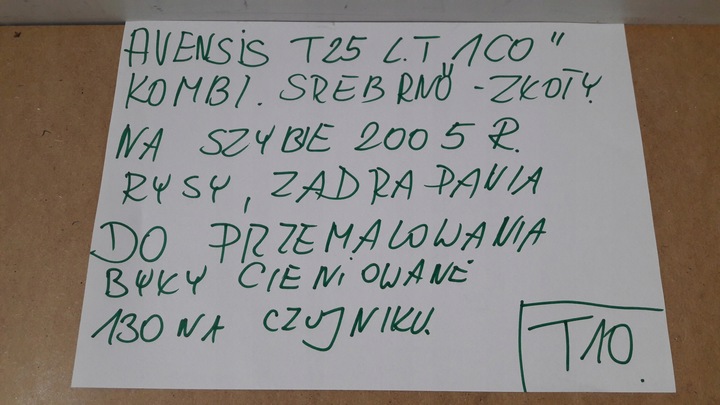 AVENSIS T25 L.T "1CO"
KOMBI. SREBRNO - ZŁOTY
NA SZYBIE 2005 R.
RYSY, ZADRAPANIA
DO PRZEMALOWANIA
BYŁY CIENIOWANE
130 NA CZUJNIKU.
T10.